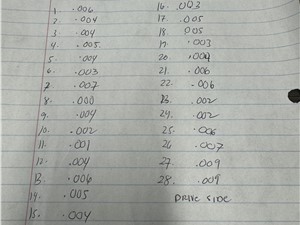 1. .006
2. .004
3. .004
4. .005
5. .004
6. .003
7. .007
8. .000
9. .004
10. .002
11. .001
12. .004
13. .006
14. .005
15. .004
16. .003
17. .005
18. .005
19. .003
20. .000
21. .006
22. .006
23. .002
24. .002
25. .006
26 .007
27. .009
28. .009
DRIVE SIDE